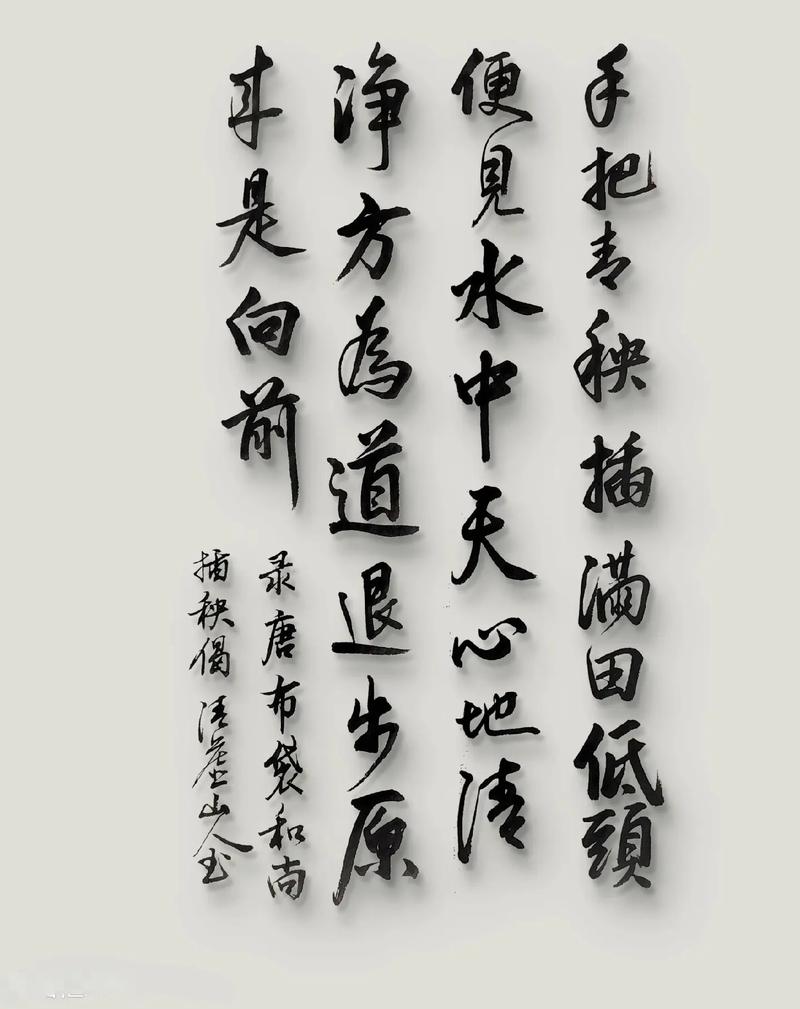 手把青秧插满田低頭
便見水中天心地清
净方為道退步原
来是向前
录唐布袋和尚
插秧偈清山人书